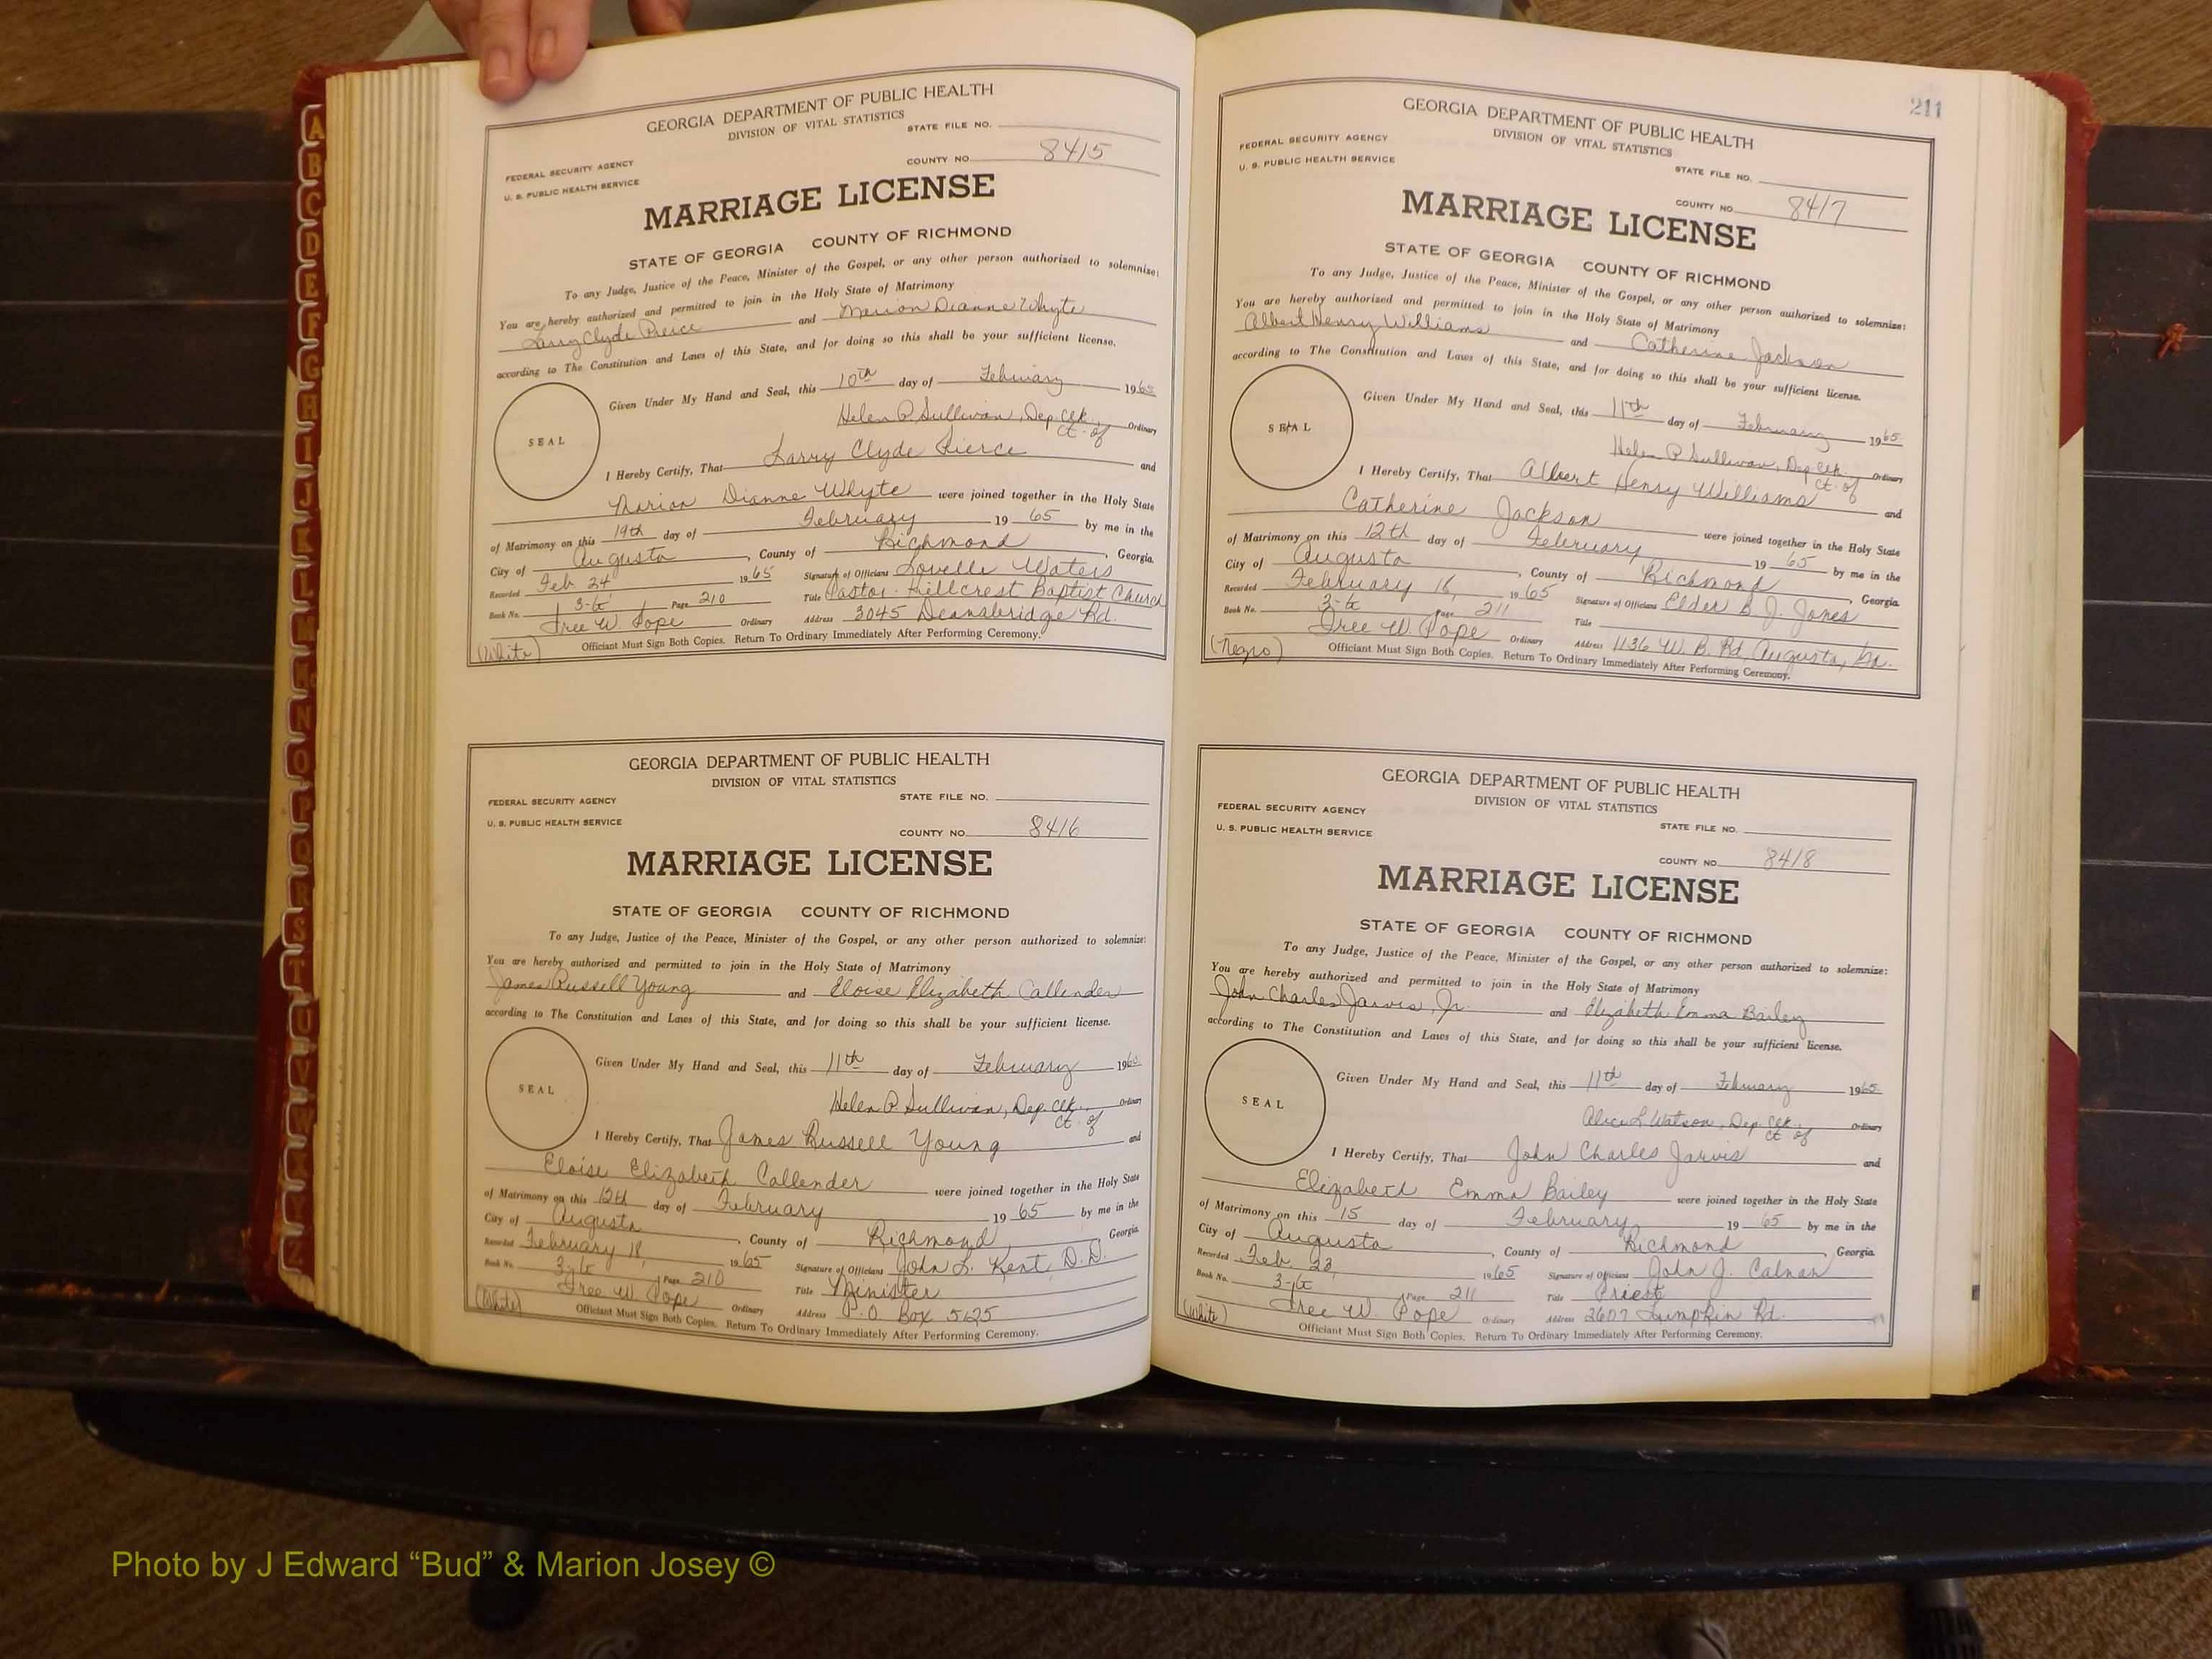 A
B
C
D
E
F
G
H
I
J
K
L
M
N
O
P
Q
R
S
T
U
V
W
GEORGIA DEPARTMENT OF PUBLIC HEALTH
DIVISION OF VITAL STATISTICS
STATE FILE NO.
FEDERAL SECURITY AGENCY
U. S. PUBLIC HEALTH SERVICE
COUNTY NO. 8415
MARRIAGE LICENSE
STATE OF GEORGIA COUNTY OF RICHMOND
To any Judge, Justice of the Peace, Minister of the Gospel, or any other person authorized to solemnize:
You are hereby authorized and permitted to join in the Holy State of Matrimony
Larry Clyde Pierce and Marion Dianne Whyte
according to The Constitution and Laws of this State, and for doing so this shall be your sufficient license.
SEAL
Given Under My Hand and Seal, this 10th day of February 1965
Helen P. Sullivan, Dep. Clk. Ordinary
Ct. of
I Hereby Certify, That Larry Clyde Pierce and
Marion Dianne Whyte were joined together in the Holy State
of Matrimony on this 19th day of February 19 65 by me in the
City of Augusta, County of Richmond, Georgia.
Recorded Feb 24 1965 Signature of Officiant Lovelle Waters
Book No. 3-G Page 210 Title Pastor - Hillcrest Baptist Church
Free W. Pope Ordinary Address 3045 Deansbridge Rd.
(White) Officiant Must Sign Both Copies. Return To Ordinary Immediately After Performing Ceremony.
GEORGIA DEPARTMENT OF PUBLIC HEALTH
DIVISION OF VITAL STATISTICS
FEDERAL SECURITY AGENCY STATE FILE NO.
U. S. PUBLIC HEALTH SERVICE COUNTY NO. 8416
MARRIAGE LICENSE
STATE OF GEORGIA COUNTY OF RICHMOND
To any Judge, Justice of the Peace, Minister of the Gospel, or any other person authorized to solemnize:
You are hereby authorized and permitted to join in the Holy State of Matrimony
James Russell Young and Eloise Elizabeth Callender
according to The Constitution and Laws of this State, and for doing so this shall be your sufficient license.
SEAL
Given Under My Hand and Seal, this 11th day of February 1965
Helen P. Sullivan, Dep. Clk. Ordinary
Ct. of
I Hereby Certify, That James Russell Young and
Eloise Elizabeth Callender were joined together in the Holy State
of Matrimony on this 12th day of February 19 65 by me in the
City of Augusta, County of Richmond, Georgia.
Recorded February 18, 1965 Signature of Officiant John L. Kent, D.D.
Book No. 3-G Page 210 Title Minister
Free W. Pope Ordinary Address P.O. Box 5625
(White) Officiant Must Sign Both Copies. Return To Ordinary Immediately After Performing Ceremony.
211
GEORGIA DEPARTMENT OF PUBLIC HEALTH
DIVISION OF VITAL STATISTICS
FEDERAL SECURITY AGENCY
U. S. PUBLIC HEALTH SERVICE
STATE FILE NO.
COUNTY NO. 8417
MARRIAGE LICENSE
STATE OF GEORGIA COUNTY OF RICHMOND
To any Judge, Justice of the Peace, Minister of the Gospel, or any other person authorized to solemnize:
You are hereby authorized and permitted to join in the Holy State of Matrimony
Albert Henry Williams and Catherine Jackson
according to The Constitution and Laws of this State, and for doing so this shall be your sufficient license.
SEAL
Given Under My Hand and Seal, this 11th day of February 1965
Helen P. Sullivan, Dep. Clk. Ordinary
Ct. of
I Hereby Certify, That Albert Henry Williams and
Catherine Jackson were joined together in the Holy State
of Matrimony on this 12th day of February 19 65 by me in the
City of Augusta, County of Richmond, Georgia.
Recorded February 18, 1965 Signature of Officiant Elder B. J. Jones
Book No. 3-G Page 211 Title
Free W. Pope Ordinary Address 1136 W. B. Rd. Augusta, Ga.
(Negro) Officiant Must Sign Both Copies. Return To Ordinary Immediately After Performing Ceremony.
GEORGIA DEPARTMENT OF PUBLIC HEALTH
DIVISION OF VITAL STATISTICS
FEDERAL SECURITY AGENCY
U. S. PUBLIC HEALTH SERVICE STATE FILE NO.
COUNTY NO. 8418
MARRIAGE LICENSE
STATE OF GEORGIA COUNTY OF RICHMOND
To any Judge, Justice of the Peace, Minister of the Gospel, or any other person authorized to solemnize:
You are hereby authorized and permitted to join in the Holy State of Matrimony
John Charles Jarvis, Jr. and Elizabeth Emma Bailey
according to The Constitution and Laws of this State, and for doing so this shall be your sufficient license.
SEAL
Given Under My Hand and Seal, this 11th day of February 1965
Alice L. Watson, Dep. Clk. Ordinary
Ct. of
I Hereby Certify, That John Charles Jarvis and
Elizabeth Emma Bailey were joined together in the Holy State
of Matrimony on this 15 day of February 19 65 by me in the
City of Augusta, County of Richmond, Georgia.
Recorded Feb. 23, 1965 Signature of Officiant John J. Calnan
Book No. 3-G Page 211 Title Priest
Free W. Pope Ordinary Address 2607 Lumpkin Rd.
(White) Officiant Must Sign Both Copies. Return To Ordinary Immediately After Performing Ceremony.
Photo by J Edward “Bud” & Marion Josey ©